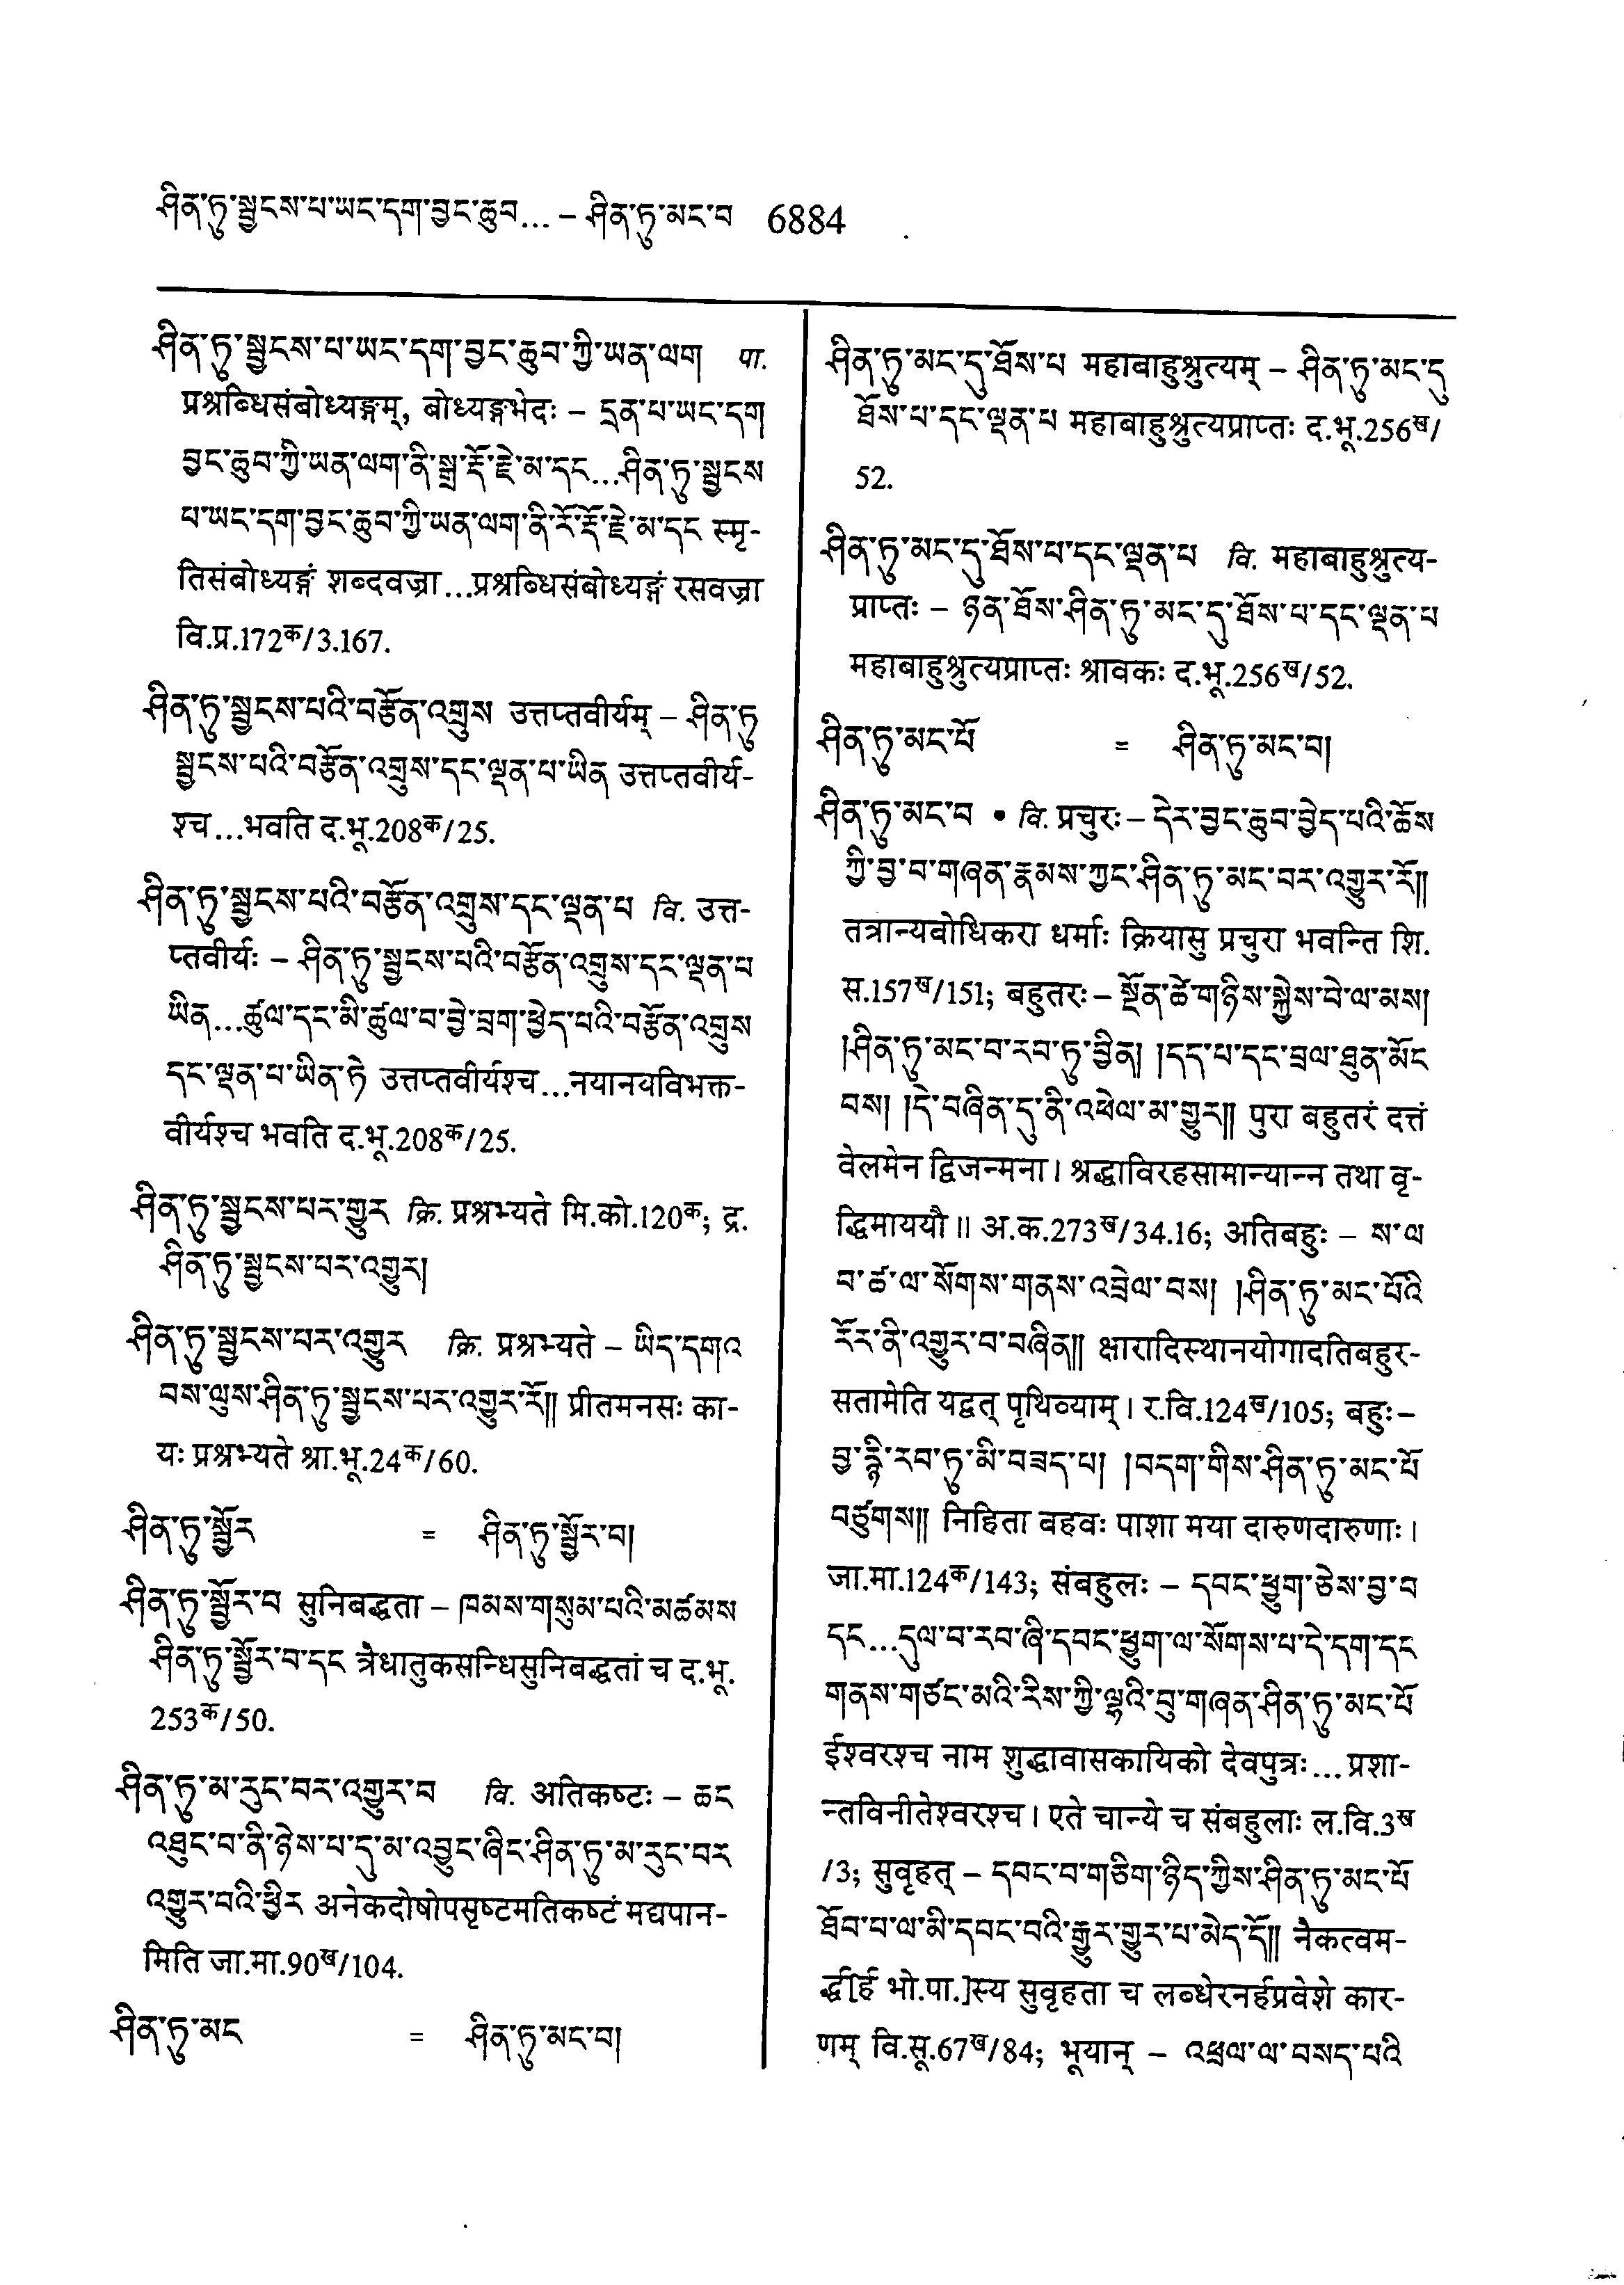 ཤིན་ཏུ་སྦྱངས་པ་ཡང་དག་བྱང་ཆུབ... – ཤིན་ཏུ་མང་བ 6884
ཤིན་ཏུ་སྦྱངས་པ་ཡང་དག་བྱང་ཆུབ་ཀྱི་ཡན་ལག पा.
प्रश्रब्धिसंबोध्यङ्गम्, बोध्यङ्गभेदः – དྲན་པ་ཡང་དག
བྱང་ཆུབ་ཀྱི་ཡན་ལག་ནི་སྒྲ་རྡོ་རྗེ་མ་དང...ཤིན་ཏུ་སྦྱངས
པ་ཡང་དག་བྱང་ཆུབ་ཀྱི་ཡན་ལག་ནི་རོ་རྡོ་རྗེ་མ་དང स्मृ-
तिसंबोध्यङ्गं शब्दवज्रा...प्रश्रब्धिसंबोध्यङ्गं रसवज्रा
वि.प्र.172क/3.167.
ཤིན་ཏུ་སྦྱངས་པའི་བརྩོན་འགྲུས उत्तप्तवीर्यम् – ཤིན་ཏུ
སྦྱངས་པའི་བརྩོན་འགྲུས་དང་ལྡན་པ་ཡིན उत्तप्तवीर्य-
श्च...भवति द.भू.208क/25.
ཤིན་ཏུ་སྦྱངས་པའི་བརྩོན་འགྲུས་དང་ལྡན་པ वि. उत्त-
प्तवीर्यः – ཤིན་ཏུ་སྦྱངས་པའི་བརྩོན་འགྲུས་དང་ལྡན་པ
ཡིན...ཚུལ་དང་མི་ཚུལ་བ་བྱེ་བྲག་ཕྱེད་པའི་བརྩོན་འགྲུས
དང་ལྡན་པ་ཡིན་ཏེ उत्तप्तवीर्यश्च...नयानयविभक्त-
वीर्यश्च भवति द.भू.208क/25.
ཤིན་ཏུ་སྦྱངས་པར་གྱུར क्रि. प्रश्रभ्यते मि.को.120क; द्र.
ཤིན་ཏུ་སྦྱངས་པར་འགྱུར།
ཤིན་ཏུ་སྦྱངས་པར་འགྱུར क्रि. प्रश्रभ्यते – ཡིད་དགའ
བས་ལུས་ཤིན་ཏུ་སྦྱངས་པར་འགྱུར་རོ།། प्रीतमनसः का-
यः प्रश्रभ्यते श्रा.भू.24क/60.
ཤིན་ཏུ་སྦྱོར = ཤིན་ཏུ་སྦྱོར་བ།
ཤིན་ཏུ་སྦྱོར་བ सुनिबद्धता – ཁམས་གསུམ་པའི་མཚམས
ཤིན་ཏུ་སྦྱོར་བ་དང त्रैधातुकसन्धिसुनिबद्धतां च द.भू.
253क/50.
ཤིན་ཏུ་མ་རུང་བར་འགྱུར་བ वि. अतिकष्टः – ཆང
འཐུང་བ་ནི་ཉེས་པ་དུ་མ་འབྱུང་ཞིང་ཤིན་ཏུ་མ་རུང་བར
འགྱུར་བའི་ཕྱིར अनेकदोषोपसृष्टमतिकष्टं मद्यपान-
मिति जा.मा.90ख/104.
ཤིན་ཏུ་མང = ཤིན་ཏུ་མང་བ།
ཤིན་ཏུ་མང་དུ་ཐོས་པ महाबाहुश्रुत्यम् – ཤིན་ཏུ་མང་དུ
ཐོས་པ་དང་ལྡན་པ महाबाहुश्रुत्यप्राप्तः द.भू.256ख/
52.
ཤིན་ཏུ་མང་དུ་ཐོས་པ་དང་ལྡན་པ वि. महाबाहुश्रुत्य-
प्राप्तः – ཉན་ཐོས་ཤིན་ཏུ་མང་དུ་ཐོས་པ་དང་ལྡན་པ
महाबाहुश्रुत्यप्राप्तः श्रावकः द.भू.256ख/52.
ཤིན་ཏུ་མང་པོ = ཤིན་ཏུ་མང་བ།
ཤིན་ཏུ་མང་བ • वि. प्रचुरः – དེར་བྱང་ཆུབ་བྱེད་པའི་ཆོས
ཀྱི་བྱ་བ་གཞན་རྣམས་ཀྱང་ཤིན་ཏུ་མང་བར་འགྱུར་རོ།།
तत्रान्यबोधिकरा धर्माः क्रियासु प्रचुरा भवन्ति शि.
स.157ख/151; बहुतरः – སྔོན་ཚེ་གཉིས་སྐྱེས་བེ་ལ་མས།
།ཤིན་ཏུ་མང་བ་རབ་ཏུ་བྱིན། །དད་པ་དང་བྲལ་ཐུན་མོང
བས། །དེ་བཞིན་དུ་ནི་འཕེལ་མ་གྱུར།། पुरा बहुतरं दत्तं
वेलमेन द्विजन्मना। श्रद्धाविरहसामान्यान्न तथा वृ-
द्धिमाययौ॥ अ.क.273ख/34.16; अतिबहुः – ས་ལ
བ་ཚ་ལ་སོགས་གནས་འབྲེལ་བས། །ཤིན་ཏུ་མང་པོའི
རོར་ནི་འགྱུར་བ་བཞིན།། क्षारादिस्थानयोगादतिबहुर-
सतामेति यद्वत् पृथिव्याम्। र.वि.124ख/105; बहुः –
བྱ་རྙི་རབ་ཏུ་མི་བཟད་པ། །བདག་གིས་ཤིན་ཏུ་མང་པོ
བཙུགས།། निहिता बहवः पाशा मया दारुणदारुणाः।
जा.मा.124क/143; संबहुलः – དབང་ཕྱུག་ཅེས་བྱ་བ
དང...དུལ་བ་རབ་ཞི་དབང་ཕྱུག་ལ་སོགས་པ་དེ་དག་དང
གནས་གཙང་མའི་རིས་ཀྱི་ལྷའི་བུ་གཞན་ཤིན་ཏུ་མང་པོ
ईश्वरश्च नाम शुद्धावासकायिको देवपुत्रः...प्रशा-
न्तविनीतेश्वरश्च। एते चान्ये च संबहुलाः ल.वि.3ख
/3; सुवृहत् – དབང་བ་གཅིག་ཉིད་ཀྱིས་ཤིན་ཏུ་མང་པོ
ཐོབ་པ་ལ་མི་དབང་བའི་རྒྱུར་གྱུར་པ་མེད་དོ།། नैकत्वम-
र्द्ध[र्ह भो.पा.]स्य सुवृहता च लब्धेरनर्हप्रवेशे कार-
णम् वि.सू.67ख/84; भूयान् – འཕྲལ་ལ་བསད་པའི